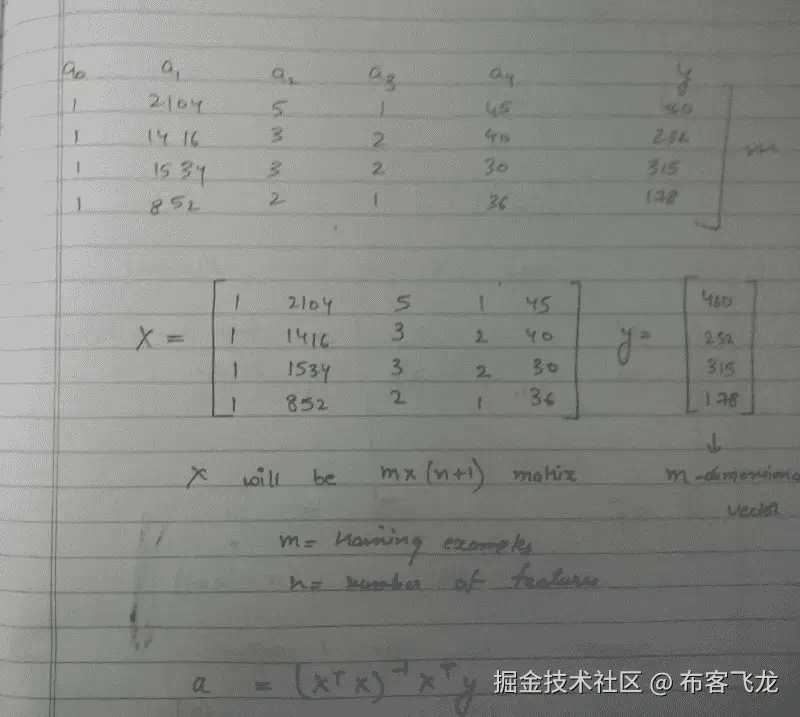 a₀ a₁ a₂ a₃ a₄ y
1 2104 5 1 45 460
1 1416 3 2 40 232
1 1534 3 2 30 315
1 852 2 1 36 178
X = [ 1 2104 5 1 45 y = [ 460
1 1416 3 2 40 232
1 1534 3 2 30 315
1 852 2 1 36 ] 178 ]
↓
X will be m×(n+1) matrix m-dimensiona
vector
m = training examples
n = number of features
a = (XᵀX)⁻¹Xᵀy
掘金技术社区 @ 布客飞龙